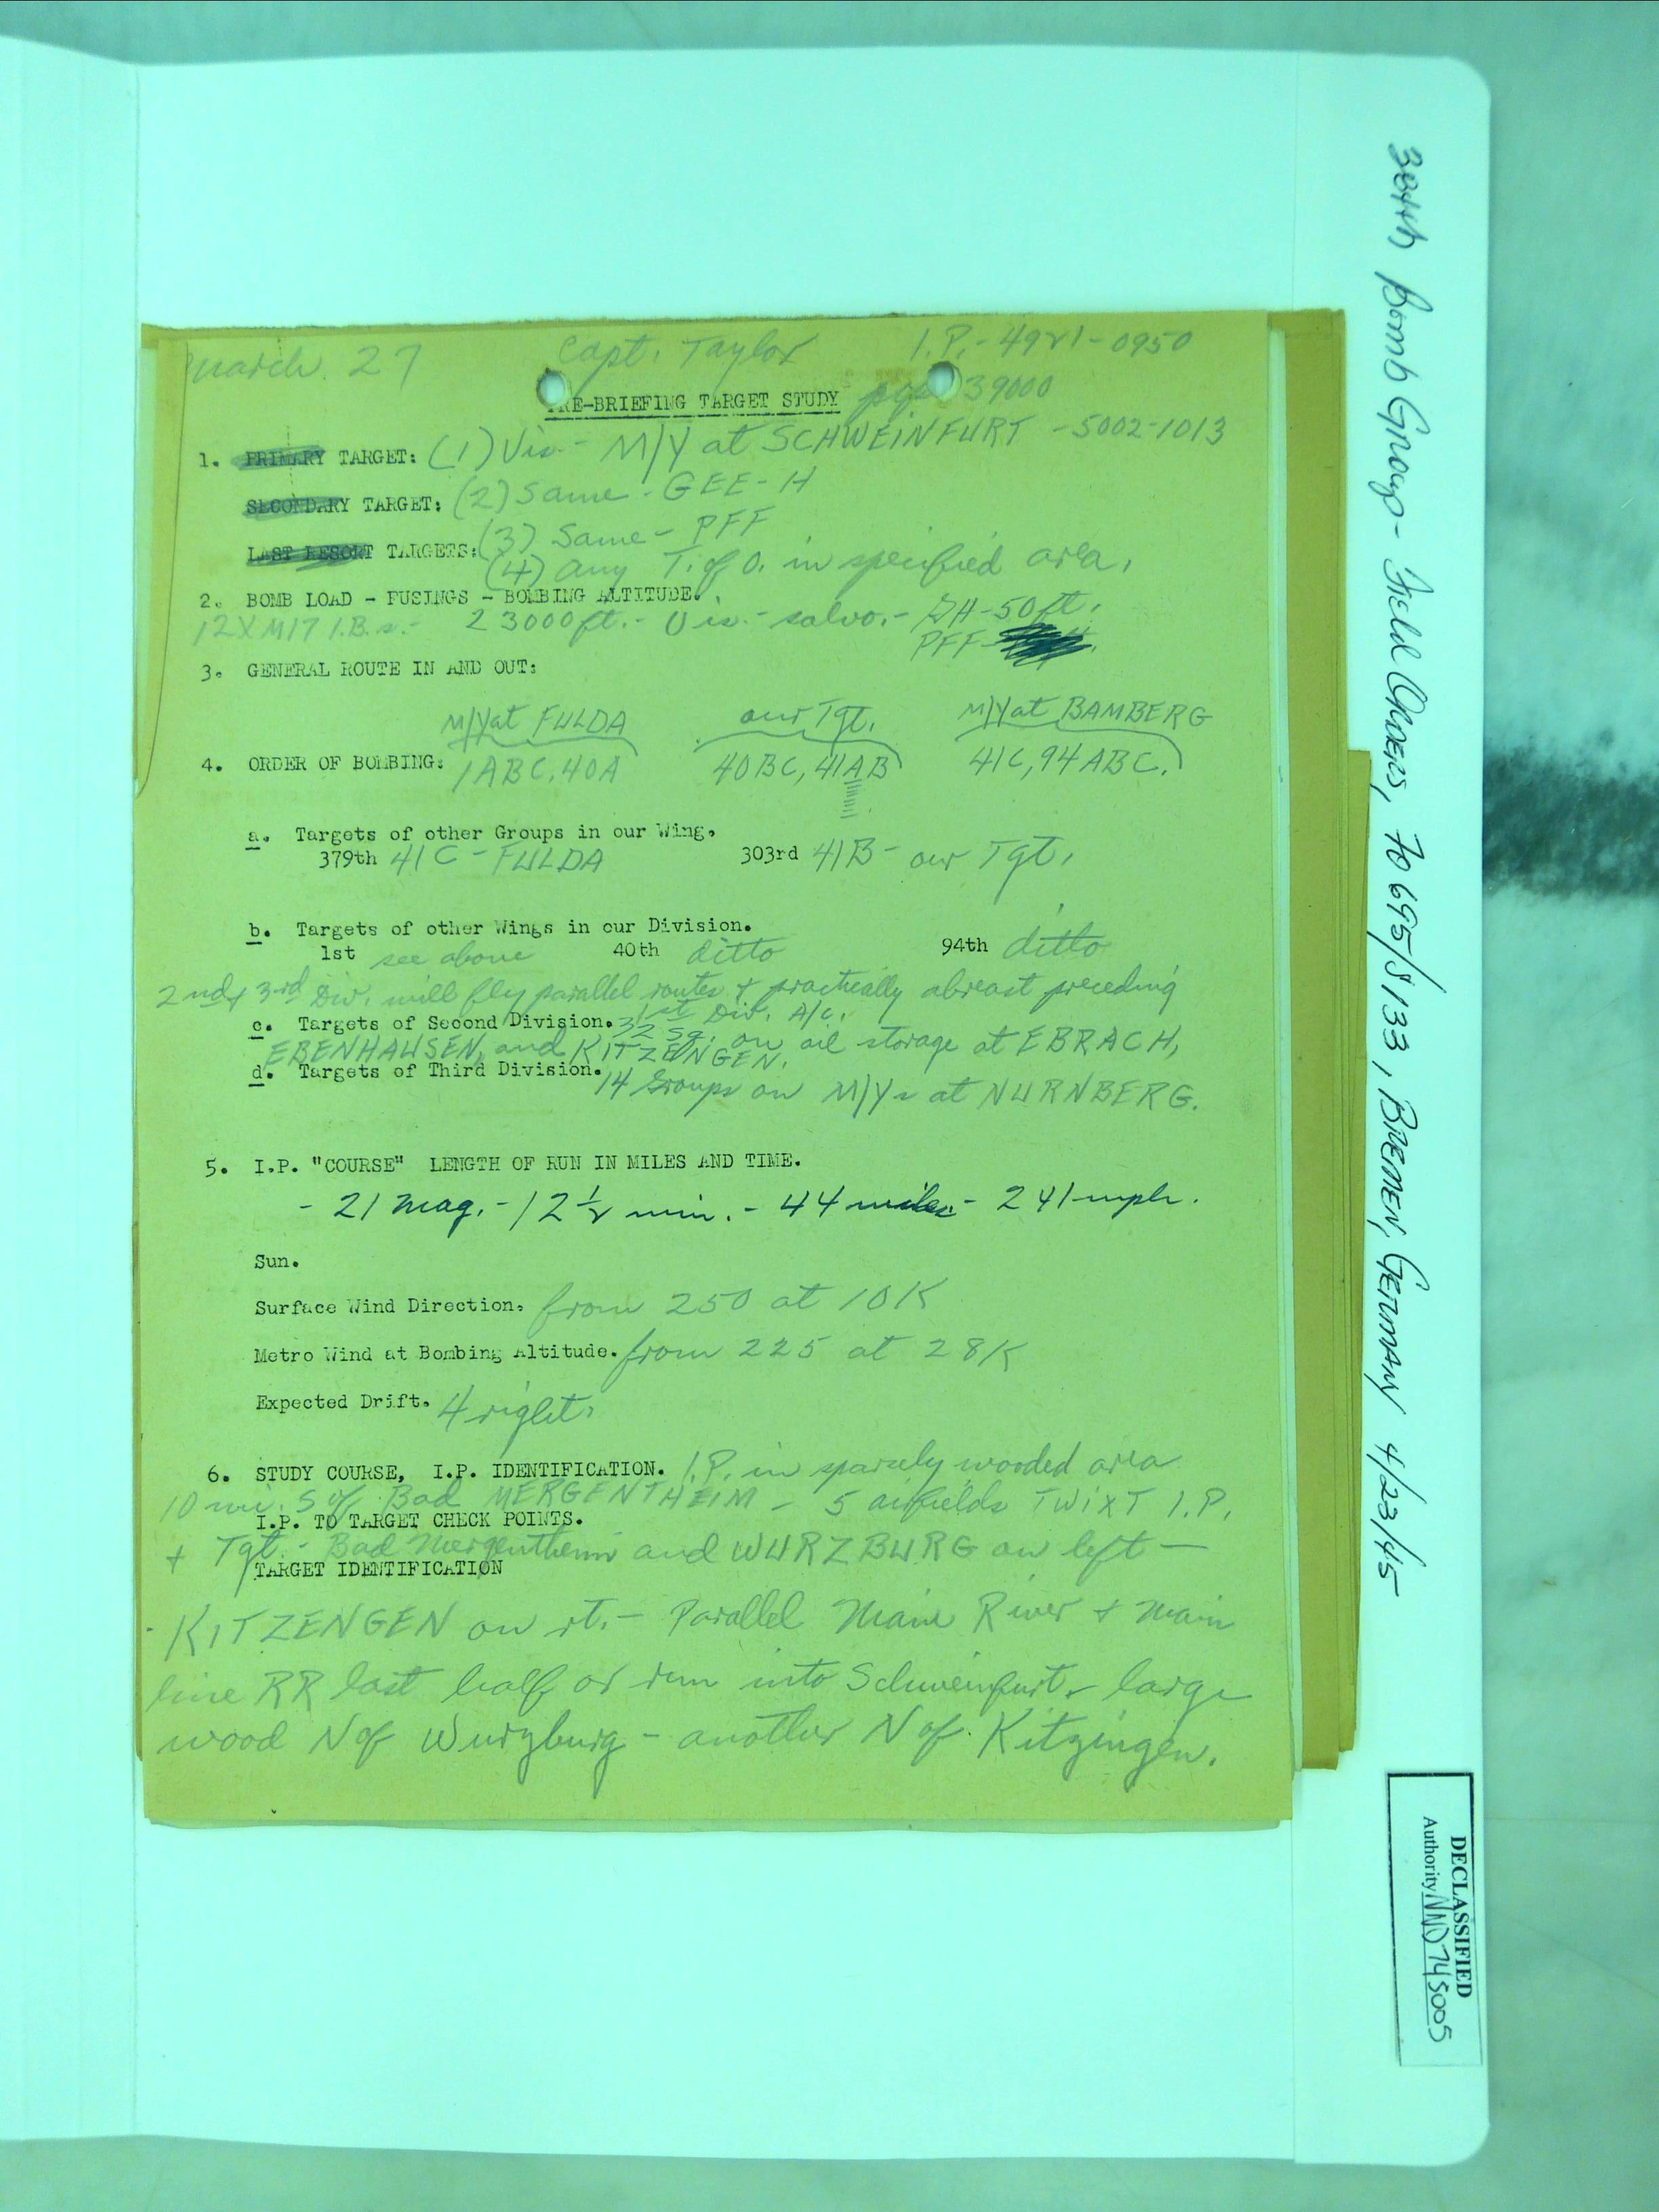 March 27 Capt. Taylor I.P. - 4921 - 0950
PRE-BRIEFING TARGET STUDY pop 39000
1. PRIMARY TARGET: (1) Vis - M/Y at SCHWEINFURT - 5002-1013
SECONDARY TARGET: (2) Same - GEE-H
(3) Same - PFF
LAST RESORT TARGETS:
(4) any T. of O. in specified area.
2. BOMB LOAD - FUSINGS - BOMBING ALTITUDE.
12 X M17 I.B.s. - 23000 ft. - Vis. - salvo. - GH - 50 ft.
PFF -
3. GENERAL ROUTE IN AND OUT:
M/Y at FULDA our Tgt. M/Y at BAMBERG
4. ORDER OF BOMBING: 1ABC, 40A 40BC, 41AB 41C, 94ABC.
a. Targets of other Groups in our Wing.
379th 41C - FULDA 303rd 41B - our Tgt.
b. Targets of other Wings in our Division.
1st see above 40th ditto 94th ditto
2nd & 3rd Div. will fly parallel routes & practically abreast preceding
1st Div. A/c.
c. Targets of Second Division. 32 sq. on oil storage at EBRACH,
EBENHAUSEN, and KITZENGEN.
d. Targets of Third Division. 14 Groups on M/Ys at NURNBERG.
5. I.P. "COURSE" LENGTH OF RUN IN MILES AND TIME.
- 21 mag. - 12 1/2 min. - 44 miles - 241 mph.
Sun.
Surface Wind Direction. from 250 at 10K
Metro Wind at Bombing Altitude. from 225 at 28K
Expected Drift. 4 right.
6. STUDY COURSE, I.P. IDENTIFICATION. I.P. in sparsely wooded area
10 mi. S of Bad MERGENTHEIM - 5 airfields TWIXT I.P.
I.P. TO TARGET CHECK POINTS.
+ Tgt. - Bad Mergentheim and WURZBURG on left -
TARGET IDENTIFICATION
- KITZENGEN on rt. - Parallel Main River + main
line RR last half or run into Schweinfurt - large
wood N of Wurzburg - another N of Kitzingen.
384th Bomb Group - Field Orders, FO 695/S133, BREMEN, GERMANY 4/23/45
DECLASSIFIED
Authority NND 745005